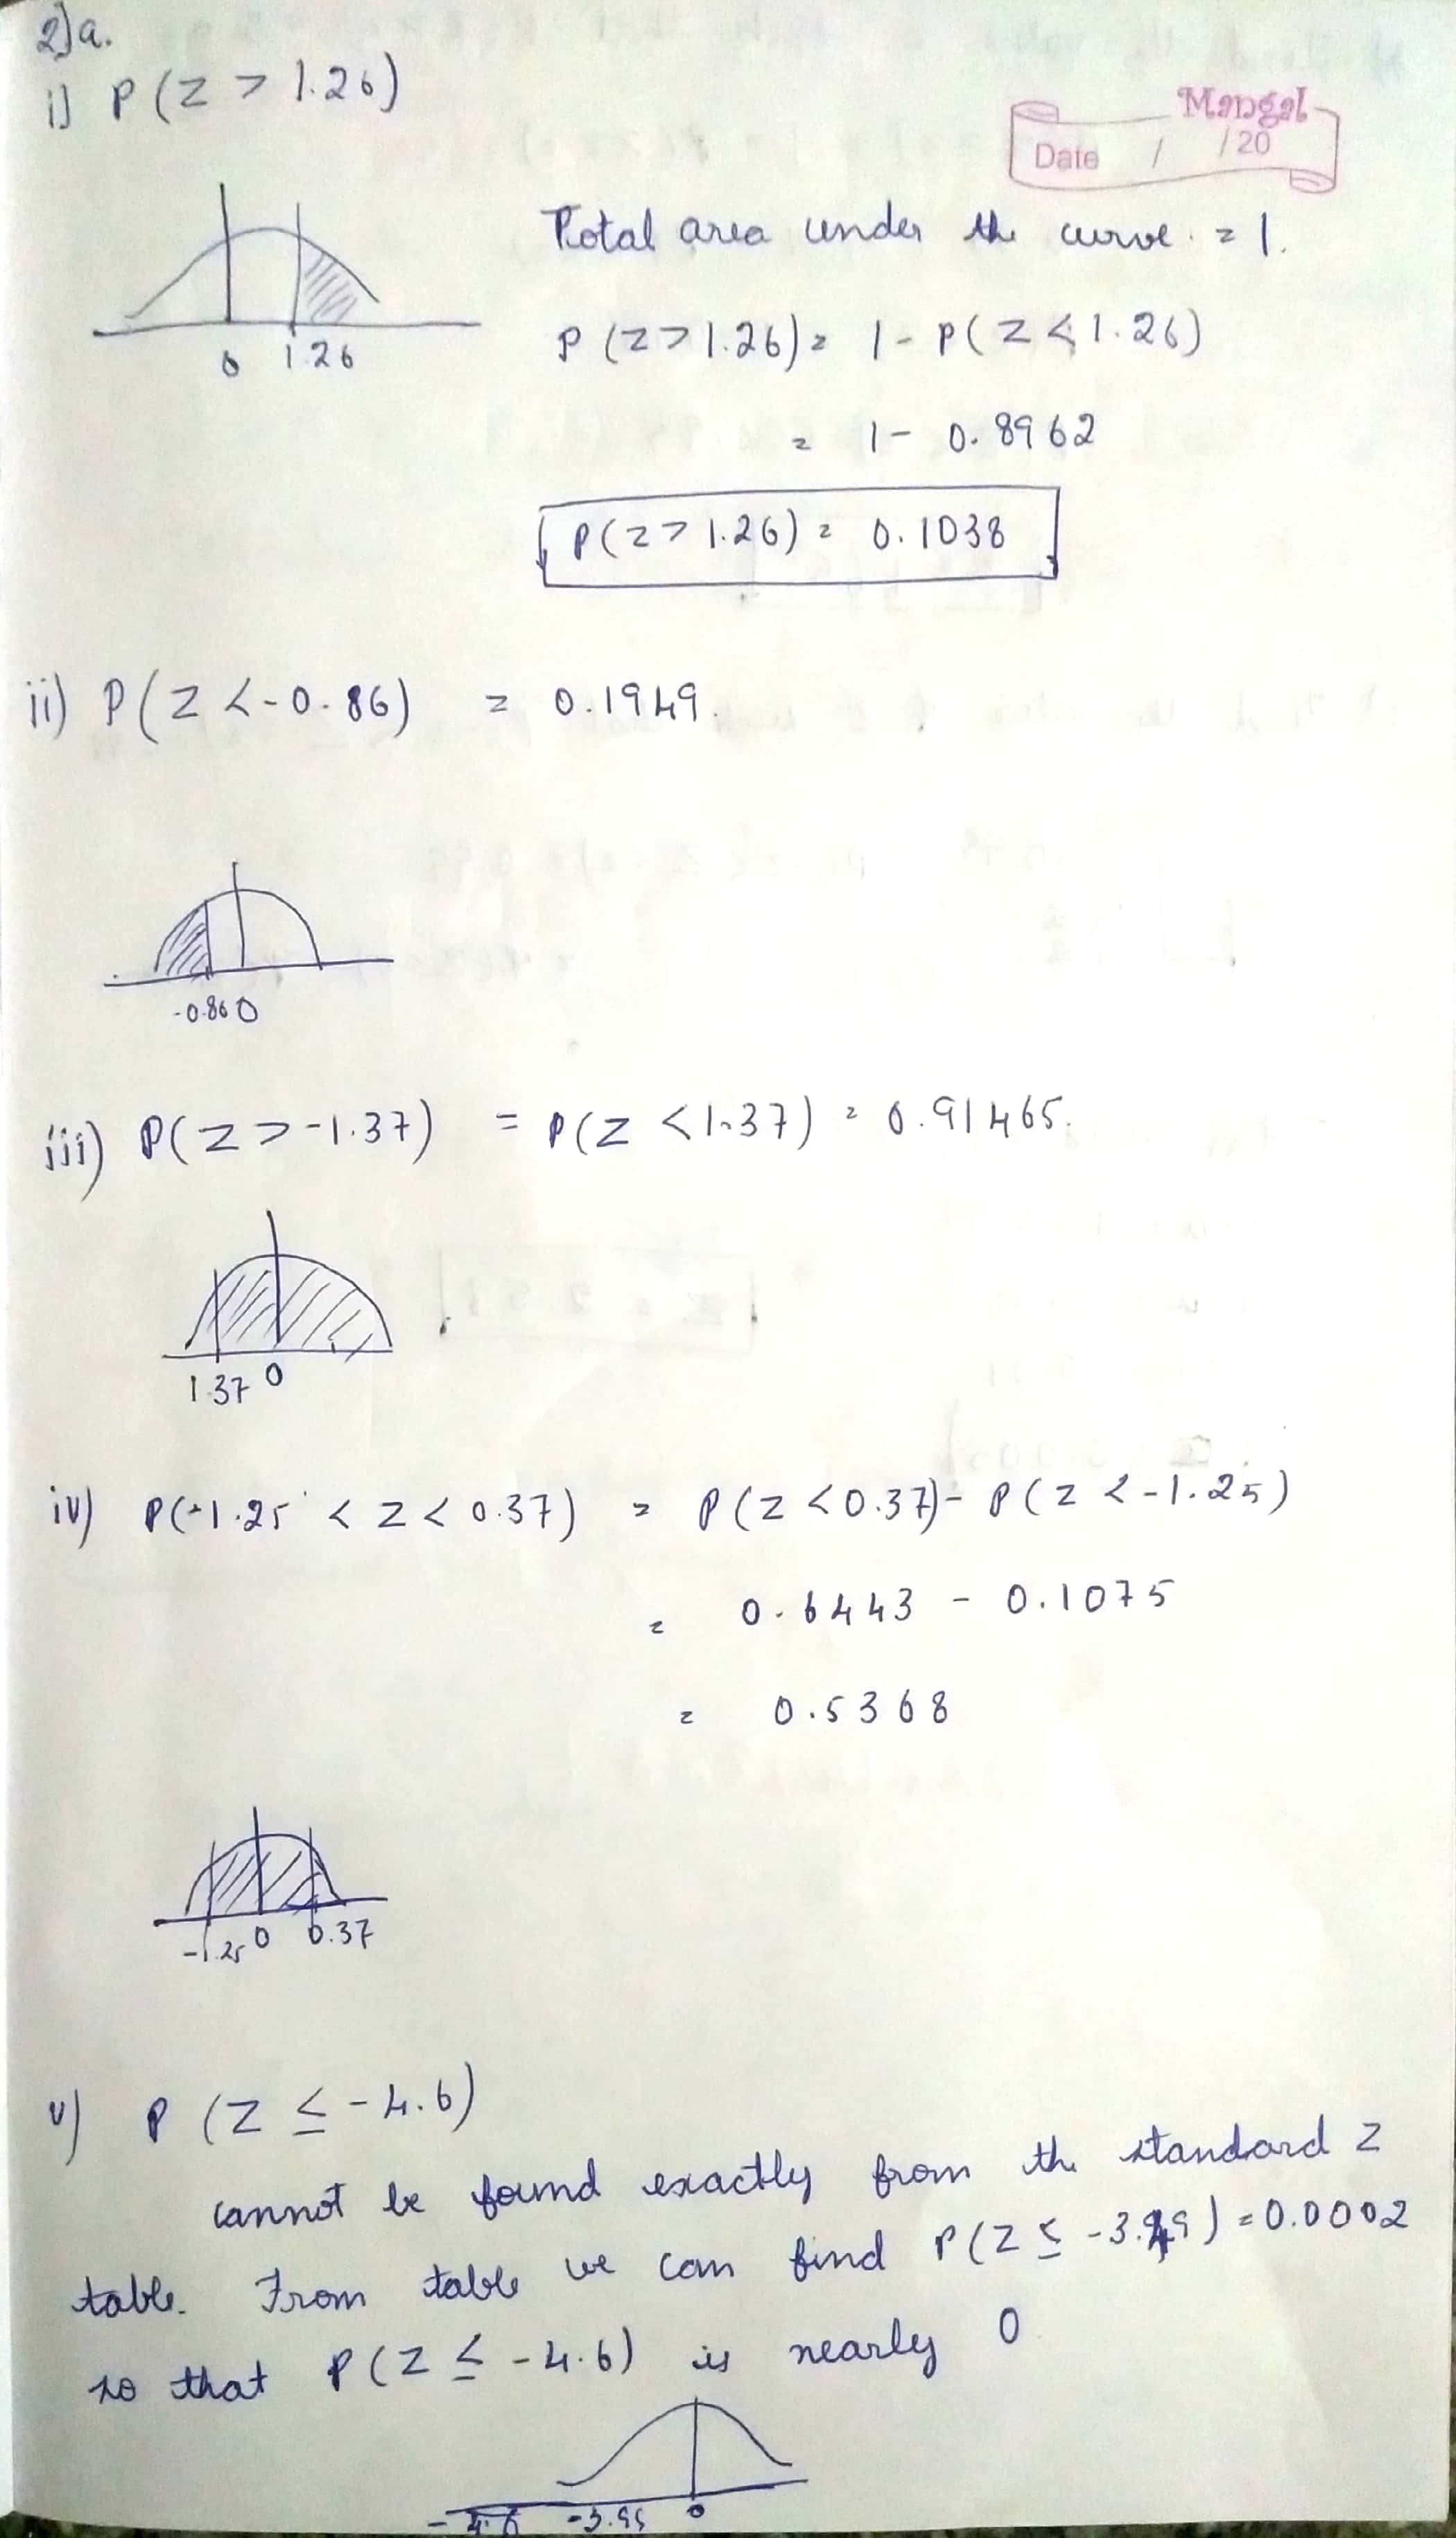 2)a.
i) P(Z > 1.26)
Mangal
Date / /20
Total area under the curve = 1.
0 1.26
P(Z > 1.26) = 1 - P(Z < 1.26)
= 1 - 0.8962
P(Z > 1.26) = 0.1038
ii) P(Z < -0.86) = 0.1949.
-0.86 0
iii) P(Z > -1.37) = P(Z < 1.37) = 0.91465.
1.37 0
iv) P(-1.25 < Z < 0.37) = P(Z < 0.37) - P(Z < -1.25)
= 0.6443 - 0.1075
= 0.5368
-1.25 0 0.37
v) P(Z ≤ -4.6)
cannot be found exactly from the standard Z
table. From table we can find P(Z ≤ -3.49) = 0.0002
so that P(Z ≤ -4.6) is nearly 0
-4.6 0